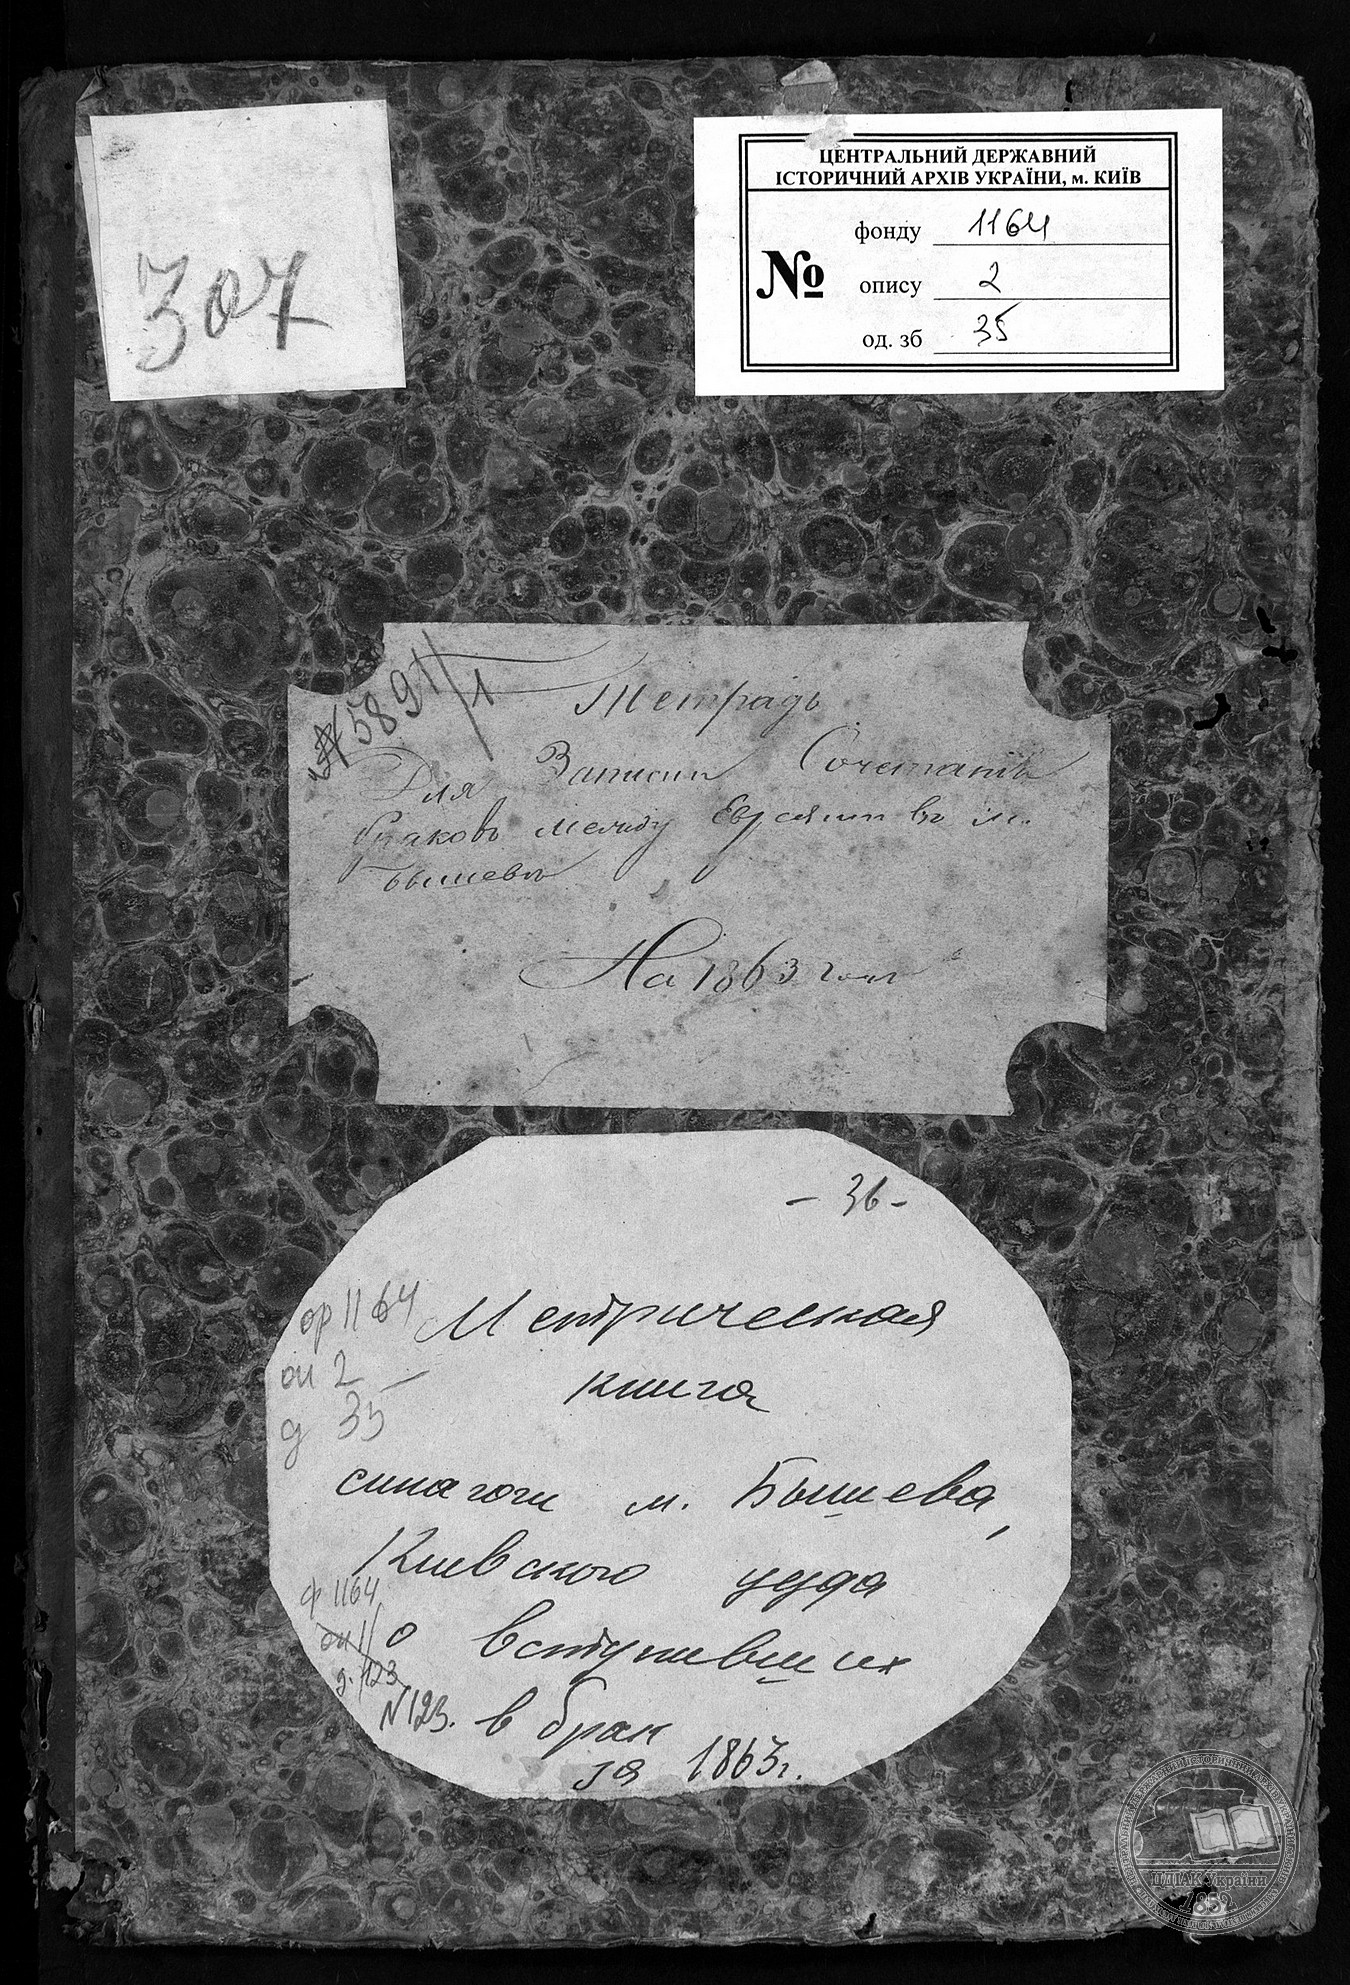 307
ЦЕНТРАЛЬНИЙ ДЕРЖАВНИЙ
ІСТОРИЧНИЙ АРХІВ УКРАЇНИ, м. КИЇВ
№
фонду 1164
опису 2
од. зб 35
№5891/1
Тетрадь
Для Записки Сочетанія
браковъ между Евреями въ м.
Бышевѣ
На 1863 годъ
- 36 -
ор 1164
оп 2
д 35
Метрическая
книга
синагоги м. Бышева,
Киевского уезда
о вступивших
в брак
за 1863 г.
ф 1164
оп 1
д. 123
N 123.
ЦДІАК України
1852